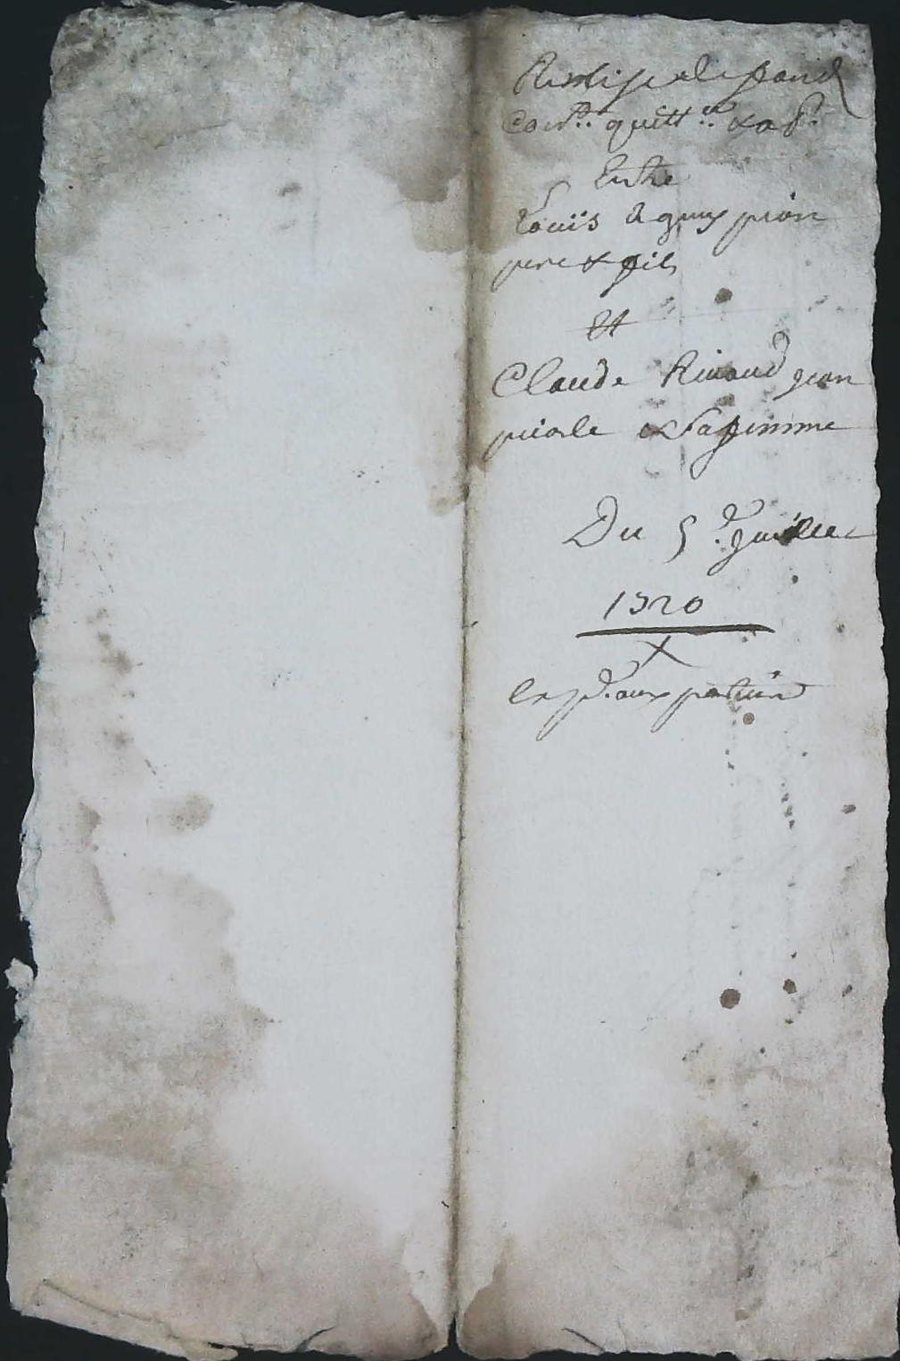 Remise de fond
Con.on quitt.ce & a P.
Entre
Loüis & guy pion
pere & fils
Et
Claude Rivaud jean
piole & sa femme
Du 5.e Juillet
1720
Exp.é aux parties